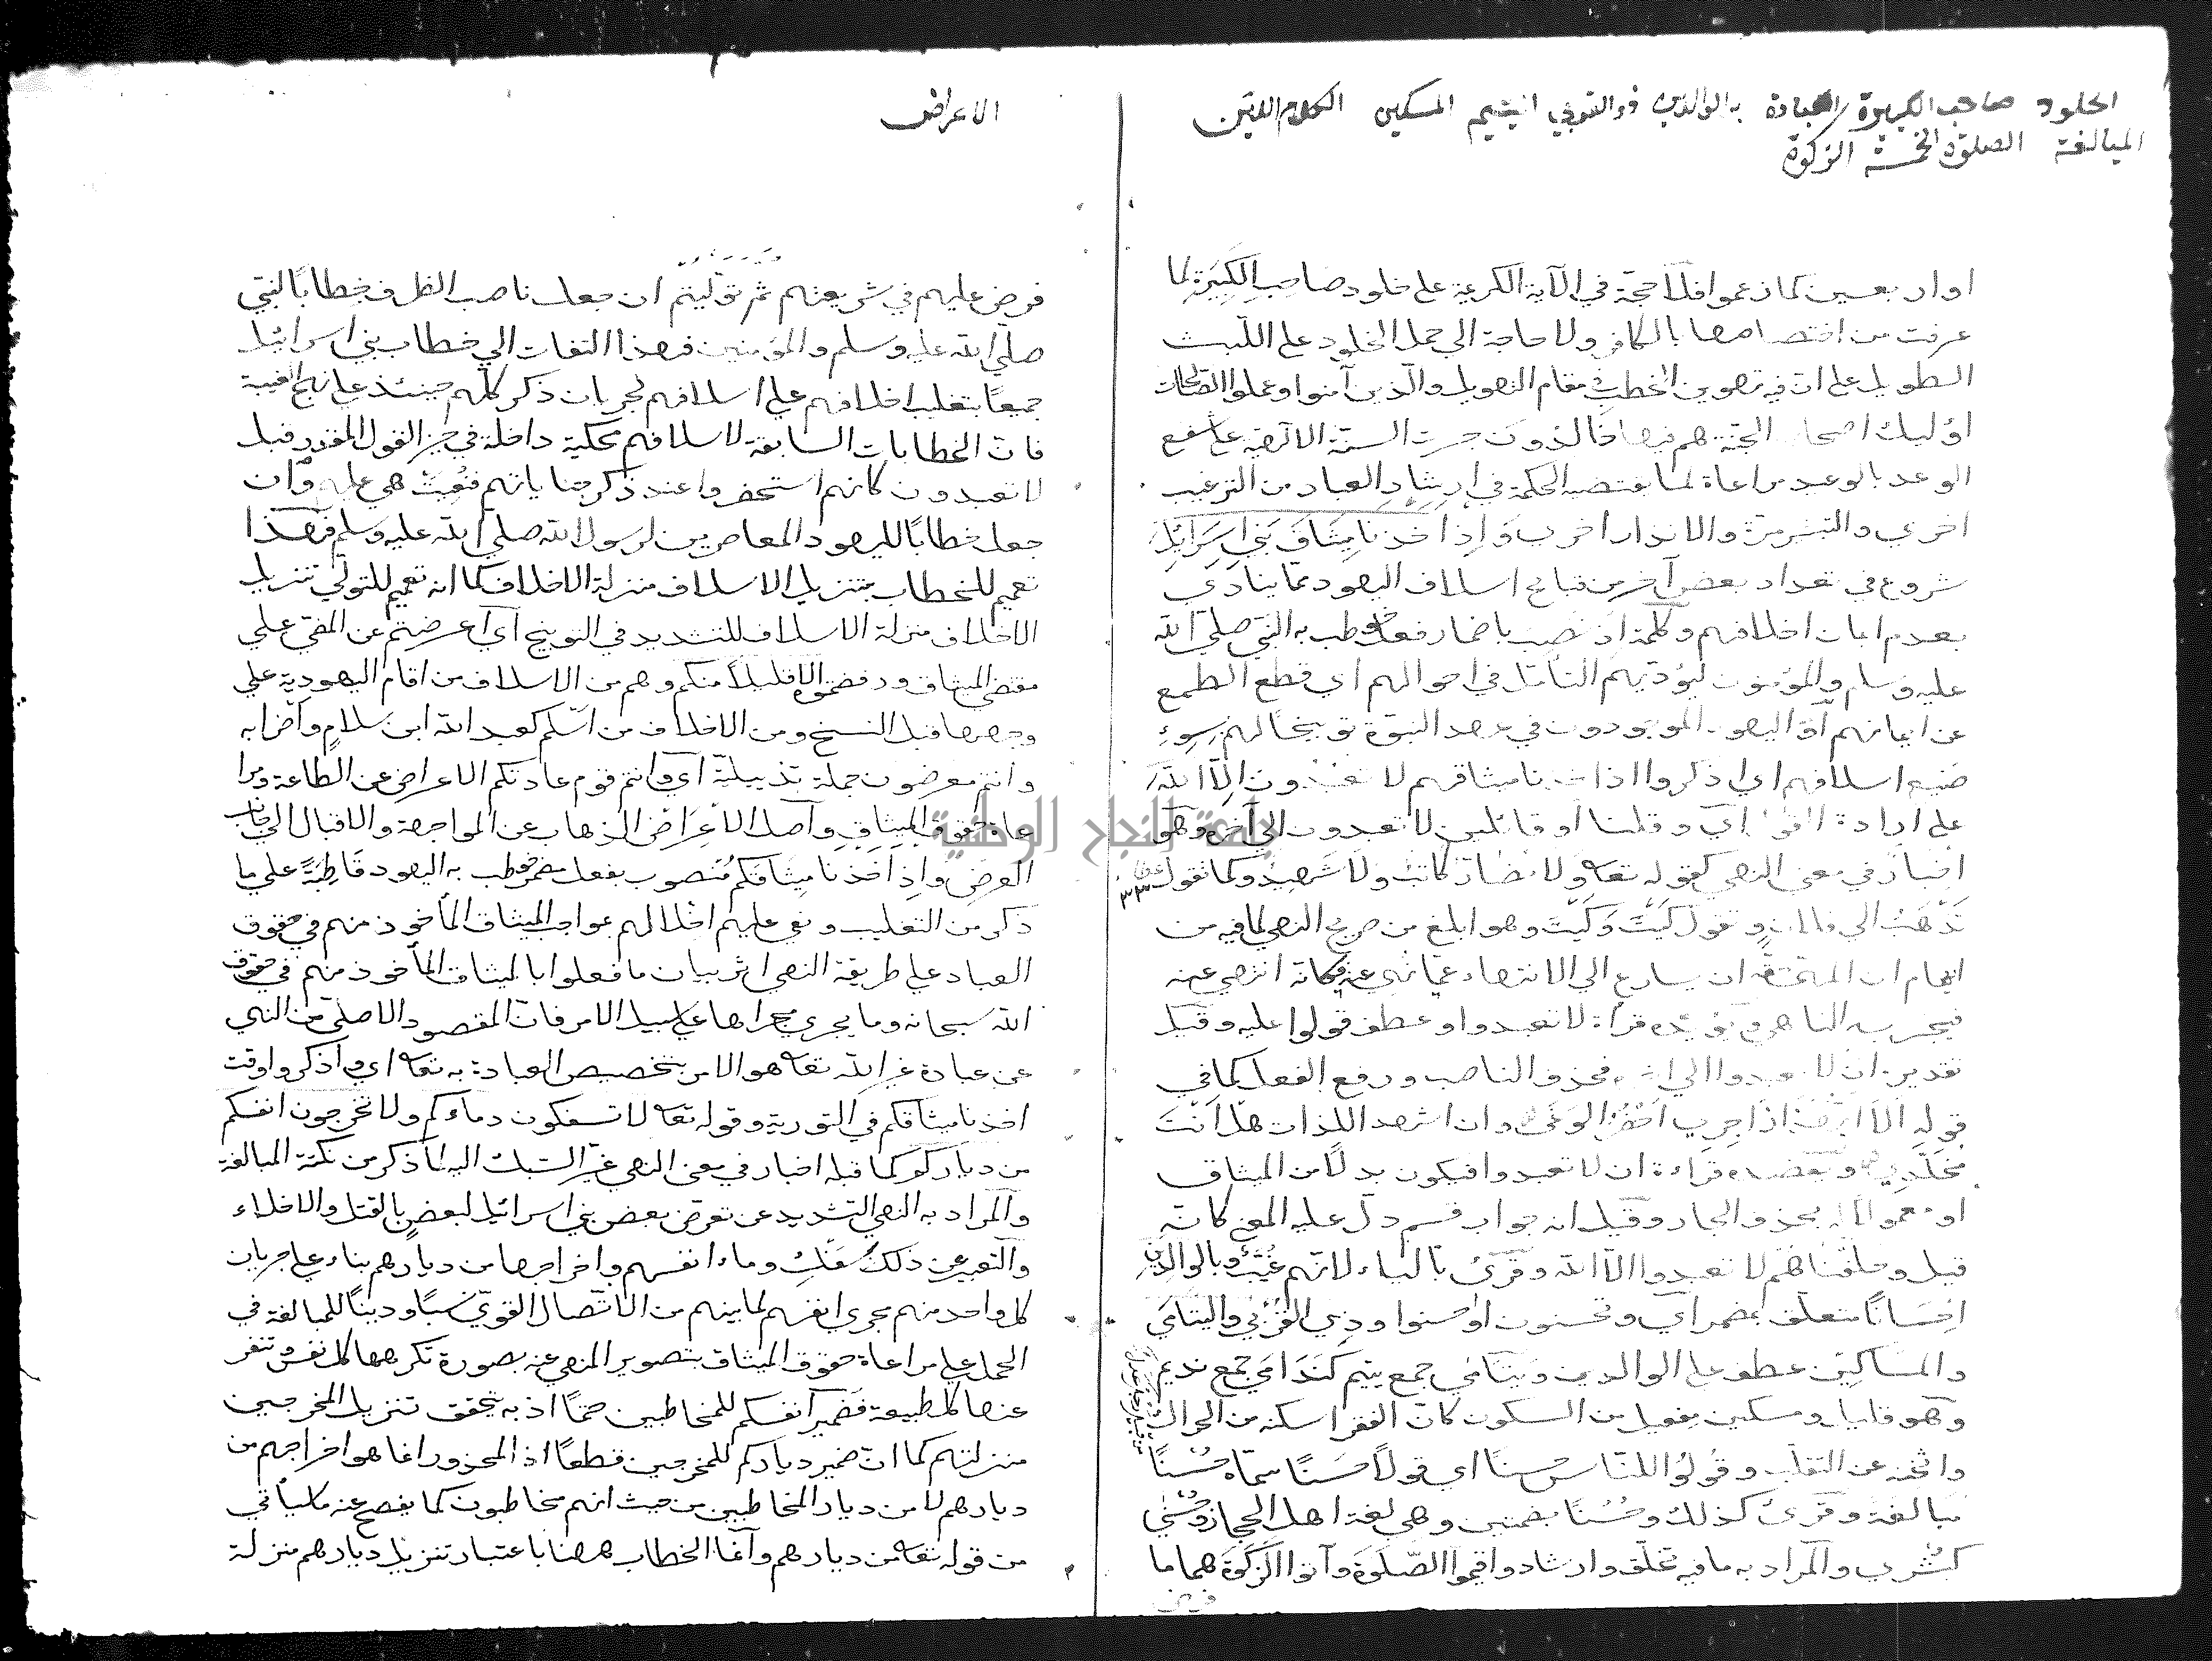 الخلود صاحب الكبيرة العبادة بالوالدين ذوالقربى اليتيم المسكين الكلام اللين
المبالغة الصلوة الخمسة الزكوة
او اربعين كما زعموا فلا حجة في الآية الكريمة على خلود صاحب الكبيرة لما
عرفت من اختصاصها بالكافر ولا حاجة الى حمل الخلود على اللبث
الطويل على ان فيه تهوين الخطب في مقام التهويل والذين آمنوا وعملوا الصالحات
اولئك اصحاب الجنة هم فيها خالدون جرت السنة الالهية على شفع
الوعد بالوعيد مراعاة لما يقتضيه الحكمة في ارشاد العباد من الترغيب
اخرى والتبشير مرة والانذار اخرى وَاِذ اَخذنا مِيثَاقَ بَنِي اِسَرائِيلَ
شروع في تعداد بعض آخر من قبائح اسلاف اليهود مما ينادي
بعدم ايمان اخلافهم وكلمة اذ نصب باضمار فعل خوطب به النبي صلى الله
عليه وسلم والمؤمنون ليؤديهم التأمل في احوالهم اى قطع الطمع
عن ايمانهم او اليهود الموجودون في عهد النبوة توبيخا لهم بسوء
صنيع اسلافهم اى اذكروا اذ اخذنا ميثاقهم لا تعبدون الا الله
على ارادة القول اى وقلنا او قائلين لا تعبدون الى آخره وهو
اخبار في معنى النهي كقوله تعالى ولا يضار كاتب ولا شهيد وكما تقول
تذهب الى فلان وتقول كيت وكيت وهو ابلغ من صريح النهي لما فيه من
ايهام ان المنهي حقه ان يسارع الى الانتهاء عما نهي عنه فكانه انتهى عنه
فيخبر به الناهي ويؤيده قراءة لا تعبدوا وعطف قولوا عليه وقيل
تقديره ان لا تعبدوا الى اخره فحذف الناصب ورفع الفعل كما في
قوله الا ايهذا اذا جري احضر الوغى وان اشهد اللذات هل انت
مخلدي ويعضده قراءة ان لا تعبدوا فيكون بدلا من الميثاق
او معمولا له بحذف الجار وقيل انه جواب قسم دل عليه المعنى كانه
قيل وحلفناهم لا تعبدوا الا الله وقرئ بالياء لانهم غُيَّب وبالوالدين
اِحسَانًا متعلق بمضمر اى وتحسنون او احسنوا وذي القربى واليتامى
والمساكين عطف على الوالدين ويتامى جمع يتيم كندامى جمع نديم
وهو قليل ومسكين مفعيل من السكون كان الفقر اسكنه من الحراك
واثخنه عن التقلب وقولوا للناس حسنا اى قولا حسنا سماه حسنا
مبالغة وقرئ كذلك وحُسُنًا بضمتين وهي لغة اهل الحجاز وحسنى
كبشرى والمراد به ما فيه تخلق وارشاد واقيموا الصلوة وآتوا الزكوة هما ما
فرض
الاعراض
فرض عليهم في شريعتهم ثم توليتم ان جعل ناصب الظرف خطابا للنبي
صلى الله عليه وسلم والمؤمنين فهذا التفات الى خطاب بني اسرائيل
جميعا بتغليب اخلافهم على اسلافهم لجريان ذكر كلهم حينئذ على نهج الغيبة
فان الخطابات السابقة لاسلافهم محكية داخلة في حيز القول المقدر قبل
لا تعبدون كانهم استحضروا عند ذكر جناياتهم فنُعيت هي عليهم وان
جعل خطابا لليهود المعاصرين لرسول الله صلى الله عليه وسلم فهذا
تعميم للخطاب بتنزيل الاسلاف منزلة الاخلاف كما انه تعميم للتولي بتنزيل
الاخلاف منزلة الاسلاف للتشديد في التوبيخ اى اعرضتم عن المضي على
مقتضى الميثاق ورفضتموه الا قليلا منكم وهم من الاسلاف من اقام اليهودية على
وجهها قبل النسخ ومن الاخلاف من اسلم كعبد الله ابن سلام واضرابه
وانتم معرضون جملة تذييلية اى وانتم قوم عادتكم الاعراض عن الطاعة ومرا
عاة حقوق الميثاق واصل الاعراض الذهاب عن المواجهة والاقبال الى جانب
العرض واِذ اَخذنا مِيثاقكم منصوب بفعل مضمر خوطب به اليهود قاطبة على ما
ذكر من التغليب ونعي عليهم اخلالهم بمواجب الميثاق المأخوذ منهم في حقوق
العباد على طريقة النهي اثر بيان ما فعلوا بالميثاق المأخوذ منهم في حقوق
الله سبحانه وما يجري مجراها على سبيل الامر فان المقصود الاصلي من النهي
عن عبادة غير الله تعالى هو الامر بتخصيص العبادة به تعالى اى واذكروا وقت
اخذنا ميثاقكم في التورية وقوله تعالى لا تسفكون دماءكم ولا تخرجون انفسكم
من دياركم كما قبله اخبار في معنى النهي غير السبك اليه لما ذكر من نكتة المبالغة
والمراد به النهي الشديد عن تعرض بعض بني اسرائيل لبعض بالقتل والاجلاء
والتعبير عن ذلك بسفك دماء انفسهم واخراجها من ديارهم بناء على جريان
كل واحد منهم مجرى انفسهم لما بينهم من الاتصال القوي نسبا ودينا للمبالغة في
الحمل على مراعاة حقوق الميثاق بتصوير المنهي عنه بصورة تكرهها كل نفس وتنفر
عنها كل طبيعة فضمير انفسكم للمخاطبين حتما اذ به يتحقق تنزيل المخرجين
منزلتهم كما ان ضمير دياركم للمخرجين قطعا اذ المحذور انما هو اخراجهم من
ديارهم لا من ديار المخاطبين من حيث انهم مخاطبون كما يفصح عنه ما سيأتي
من قوله تعالى من ديارهم وانما الخطاب ههنا باعتبار تنزيل ديارهم منزلة
جامعة النجاح الوطنية